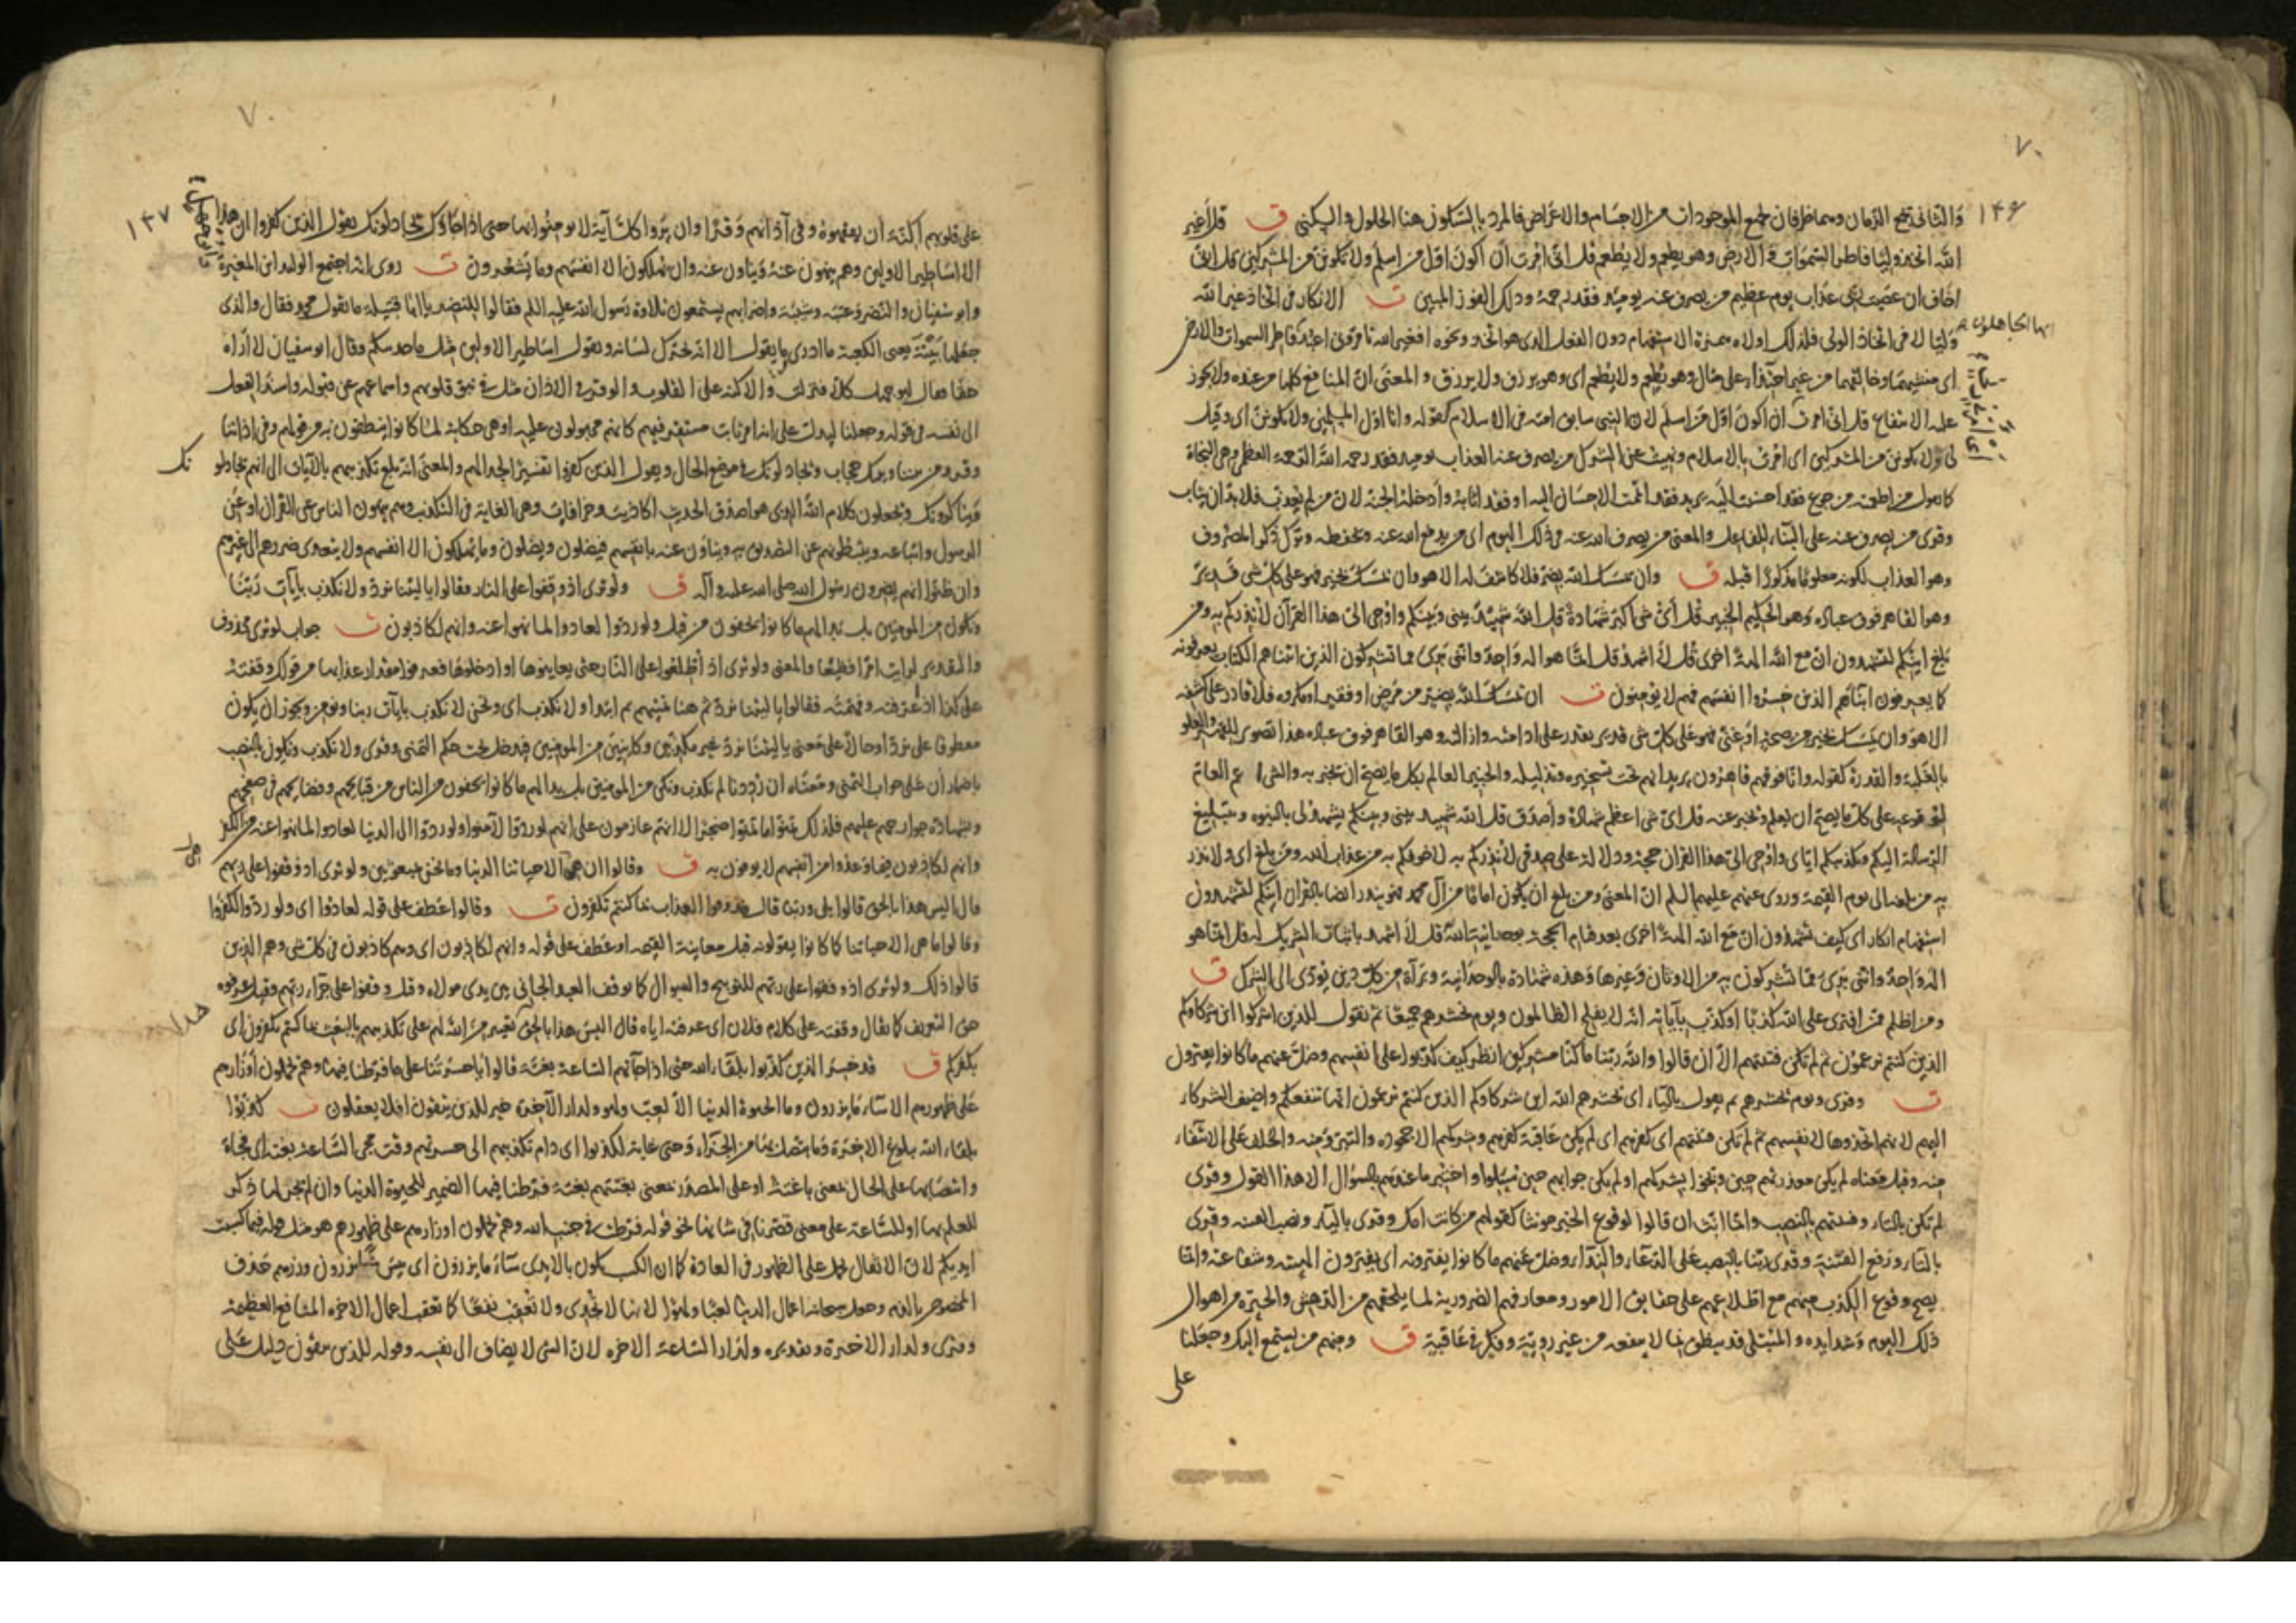 ٧٠
١٤٦
والثانى يجمع الزمان وهما ظرفان لجمع الموجودات من الاجسام والاعراض فالمراد بالسكون هنا الحلول والسكنى ق قل اغير
الله اتخذ وليا فاطر السموات والارض وهو يطعم ولا يطعم قل انى امرت ان اكون اول من اسلم ولا تكونن من المشركين قل انى
اخاف ان عصيت ربى عذاب يوم عظيم من يصرف عنه يومئذ فقد رحمه وذلك الفوز المبين ت الانكار فى اتخاذ غير الله
وليا لا فى اتخاذ الولى فلذلك اولاه همزة الاستفهام دون الفعل الذى هو اتخذ ونحوه افغير الله تأمرونى اعبد فاطر السموات والارض
ايها الجاهلون
اى منشئهما وخالقهما من غير احتذاء على مثال وهو يطعم ولا يطعم اى وهو يرزق ولا يرزق والمعنى ان المنافع كلها من عنده ولا يجوز
عليه الانتفاع قل انى امرت ان اكون اول من اسلم لان النبى سابق امته فى الاسلام كقوله وانا اول المسلمين ولا تكونن اى وقيل
لى ولا تكونن من المشركين اى امرت بالاسلام ونهيت عن الشرك من يصرف عنه العذاب يومئذ فقد رحمه الله الرحمة العظمى وهى النجاة
كما تقول من اطعمته من جوع فقد احسنت اليه يريد فقد اتممت الاحسان اليه او فقد اثابه وادخله الجنة لان من لم يعذب فلا بد ان يثاب
وقرئ من يصرف عنه على البناء للفاعل والمعنى من يصرف الله عنه فى ذلك اليوم اى من يدفع الله عنه ويحفظه وترك ذكر المصروف
وهو العذاب لكونه معلوما مذكورا قبله ق وان يمسسك الله بضر فلا كاشف له الا هو وان يمسسك بخير فهو على كل شى قدير
وهو القاهر فوق عباده وهو الحكيم الخبير قل اى شى اكبر شهادة قل الله شهيد بينى وبينكم واوحى الى هذا القرآن لانذركم به ومن
بلغ ائنكم لتشهدون ان مع الله الهة اخرى قل لا اشهد قل انما هو اله واحد واننى برى مما تشركون الذين اتيناهم الكتاب يعرفونه
كما يعرفون ابناءهم الذين خسروا انفسهم فهم لا يؤمنون ت ان يمسسك الله بضر من مرض او فقر او مكروه فلا قادر على كشفه
الا هو وان يمسسك بخير من صحة او غنى فهو على كل شى قدير يقدر على ادامته وازالته وهو القاهر فوق عباده هذا تصوير للقهر والعلو
بالغلبة والقدرة كقوله وانا فوقهم قاهرون يريد انهم تحت تسخيره وتذليله والخبير العالم بكل ما يصح ان يخبر به والشى اعم العام
لوقوعه على كل ما يصح ان يعلم ويخبر عنه قل اى شى اعظم شهادة واصدق قل الله شهيد بينى وبينكم يشهد لى بالنبوه وبتبليغ
الرسالة اليكم وتكذيبكم اياى واوحى الى هذا القرآن حجة ودلالة على صدقى لانذركم به لاخوفكم به من عذاب الله ومن بلغ اى ولانذر
به من بلغه الى يوم القيمة وروى عنهم عليهم السلم ان المعنى ومن بلغ ان يكون اماما من آل محمد فهو ينذر ايضا بالقرآن ائنكم لتشهدون
استفهام انكار اى كيف تشهدون ان مع الله الهة اخرى بعد قيام الحجة بوحدانية الله قل لا اشهد باثبات الشريك له قل انما هو
اله واحد واننى برى مما تشركون به من الاوثان وغيرها وهذه شهادة بالوحدانية وبراءة من كل دين يؤدى الى الشرك ق
ومن اظلم ممن افترى على الله كذبا او كذب بآياته انه لا يفلح الظالمون ويوم نحشرهم جميعا ثم نقول للذين اشركوا اين شركاؤكم
الذين كنتم تزعمون ثم لم تكن فتنتهم الا ان قالوا والله ربنا ما كنا مشركين انظر كيف كذبوا على انفسهم وضل عنهم ما كانوا يفترون
ت وقرئ ويوم يحشرهم ثم يقول بالياء اى يحشرهم الله اين شركاؤكم الذين كنتم تزعمون انها تنفعكم واضيف الشركاء
اليهم لانهم اتخذوها لانفسهم ثم لم تكن فتنتهم اى كفرهم اى لم يكن عاقبة كفرهم وشركهم الا جحوده والتبرؤ منه والحلف على الانتفاء
منه وقيل معناه لم يكن معذرتهم حين وبخوا بشركهم او لم يكن جوابهم حين سئلوا واختبر ما عندهم بالسؤال الا هذا القول وقرئ
لم تكن بالتاء وفتنتهم بالنصب وانما انث ان قالوا لوقوع الخبر مونثا كقولهم من كانت امك وقرئ بالياء ونصب الفتنة وقرئ
بالتاء ورفع الفتنة وقرئ ربنا بالنصب على الدعاء والنداء وضل عنهم ما كانوا يفترونه اى يفترون الهيته وشفاعته وانما
يصح وقوع الكذب منهم مع اطلاعهم على حقايق الامور ومعارفهم الضرورية لما يلحقهم من الدهش والحيرة من اهوال
ذلك اليوم وشدايده والمبتلى قد ينطق بما لا ينفعه من غير روية وفكر فى عاقبة ق ومنهم من يستمع اليك وجعلنا
على
٧٠
١٤٧
على قلوبهم اكنة ان يفقهوه وفى آذانهم وقرا وان يروا كل آية لا يومنوا بها حتى اذا جاؤك يجادلونك يقول الذين كفروا ان هذا
الا اساطير الاولين وهم ينهون عنه وينأون عنه وان يهلكون الا انفسهم وما يشعرون ت روى انه اجتمع الوليد ابن المغيرة
وابو سفيان والنضر وعتبة وشيبة واضرابهم يستمعون تلاوة رسول الله عليه السلم فقالوا للنضر يا ابا قتيلة ما يقول محمد فقال والذى
جعلها بيته يعنى الكعبة ما ادرى ما يقول الا انه يحرك لسانه ويقول اساطير الاولين مثل ما حدثتكم وقال ابو سفيان لا اراه
حقا فقال ابو جهل كلا فنزلت والاكنة على القلوب والوقر فى الاذان مثل فى نبو قلوبهم واسماعهم عن قبوله واسند الفعل
الى نفسه فى قوله وجعلنا ليدل على انه امر ثابت مستقر فيهم كانهم مجبولون عليه او هى حكاية لما كانوا ينطقون به من قولهم وفى اذاننا
وقر ومن بيننا وبينك حجاب ويجادلونك فى موضع الحال ويقول الذين كفروا تفسير لجدالهم والمعنى انه بلغ تكذيبهم بالآيات الى انهم يجادلو
نك
ويناكرونك ويجعلون كلام الله الذى هو اصدق الحديث اكاذيب وخرافات وهى الغاية فى التكذيب وهم ينهون الناس عن القرآن او عن
الرسول واتباعه ويثبطونهم عن التصديق به وينأون عنه بانفسهم فيضلون ويضلون وما يهلكون الا انفسهم ولا يتعدى ضررهم الى غيرهم
وان ظنوا انهم يضرون رسول الله صلى الله عليه وآله ق ولو ترى اذ وقفوا على النار فقالوا يا ليتنا نرد ولا نكذب بآيات ربنا
ونكون من المومنين بل بدا لهم ما كانوا يخفون من قبل ولو ردوا لعادوا لما نهوا عنه وانهم لكاذبون ت جواب لو ترى محذوف
والتقدير لرايت امرا فظيعا والمعنى ولو ترى اذ اطلعوا على النار حتى يعاينوها او ادخلوها فعرفوا مقدار عذابها من قولك وقفته
على كذا اذ عرفته وفهمته فقالوا يا ليتنا نرد تم هنا تمنيهم ثم ابتداوا ولا نكذب اى ونحن لا نكذب بايات ربنا ونؤمن ويجوز ان يكون
معطوفا على نرد او حالا على معنى يا ليتنا نرد غير مكذبين وكاينين من المومنين فيدخل تحت حكم التمنى وقرئ ولا نكذب ونكون بالنصب
باضمار ان على جواب التمنى ومعناه ان رددنا لم نكذب ونكن من المومنين بل بدا لهم ما كانوا يخفون من الناس من قبايحهم وفضايحهم فى صحفهم
وبشهادة جوارحهم عليهم فلذلك تمنوا ما تمنوا ضجرا لا انهم عازمون على انهم لو ردوا لآمنوا ولو ردوا الى الدنيا لعادوا لما نهوا عنه من الكفر
وانهم لكاذبون فيما وعدوا من انفسهم لا يوفون به ق وقالوا ان هى الا حياتنا الدنيا وما نحن بمبعوثين ولو ترى اذ وقفوا على ربهم
قال اليس هذا بالحق قالوا بلى وربنا قال فذوقوا العذاب بما كنتم تكفرون ت وقالوا عطف على قوله لعادوا اى ولو ردوا لكفروا
وقالوا ما هى الا حياتنا كما كانوا يقولونه قبل معاينة القيمة او عطف على قوله وانهم لكاذبون اى وهم كاذبون فى كل شى وهم الذين
قالوا ذلك ولو ترى اذ وقفوا على ربهم للتوبيخ والسوال كما يوقف العبد الجانى بين يدى مولاه وقيل وقفوا على جزاء ربهم وقيل عرفوه
حق التعريف كما يقال وقفته على كلام فلان اى عرفته اياه قال اليس هذا بالحق تعيير من الله لهم على تكذيبهم بالبعث بما كنتم تكفرون اى
بكفركم ق قد خسر الذين كذبوا بلقاء الله حتى اذا جاءتهم الساعة بغتة قالوا يا حسرتنا على ما فرطنا فيها وهم يحملون اوزارهم
على ظهورهم الا ساء ما يزرون وما الحيوة الدنيا الا لعب ولهو ولدار الآخرة خير للذين يتقون افلا يعقلون ت كذبوا
بلقاء الله ببلوغ الاخرة وما يتصل بها من الجزاء وحتى غاية لكذبوا اى دام تكذيبهم الى حسرتهم وقت مجى الساعة بغتة اى فجاة
وانتصابها على الحال بمعنى باغتة او على المصدر بمعنى بغتتهم بغتة فرطنا فيها الضمير للحيوة الدنيا وان لم يجر لها ذكر
للعلم بها او للساعة على معنى قصرنا فى شانها نحو قوله فرطت فى جنب الله وهم يحملون اوزارهم على ظهورهم هو مثل قوله فبما كسبت
ايديكم لان الاثقال تحمل على الظهور فى العادة كما ان الكسب يكون بالايدى ساء ما يزرون اى بئس شيئا يزرون وزرهم حذف
المخصوص بالذم وجعل سبحانه اعمال الدنيا لعبا ولهوا لانها لا تجدى ولا تعقب نفعا كما تعقب اعمال الاخره المنافع العظيمة
وقرئ ولدار الاخرة وتقديره ولدار الساعة الاخره لان الشى لا يضاف الى نفسه وقوله للذين يتقون دليل على